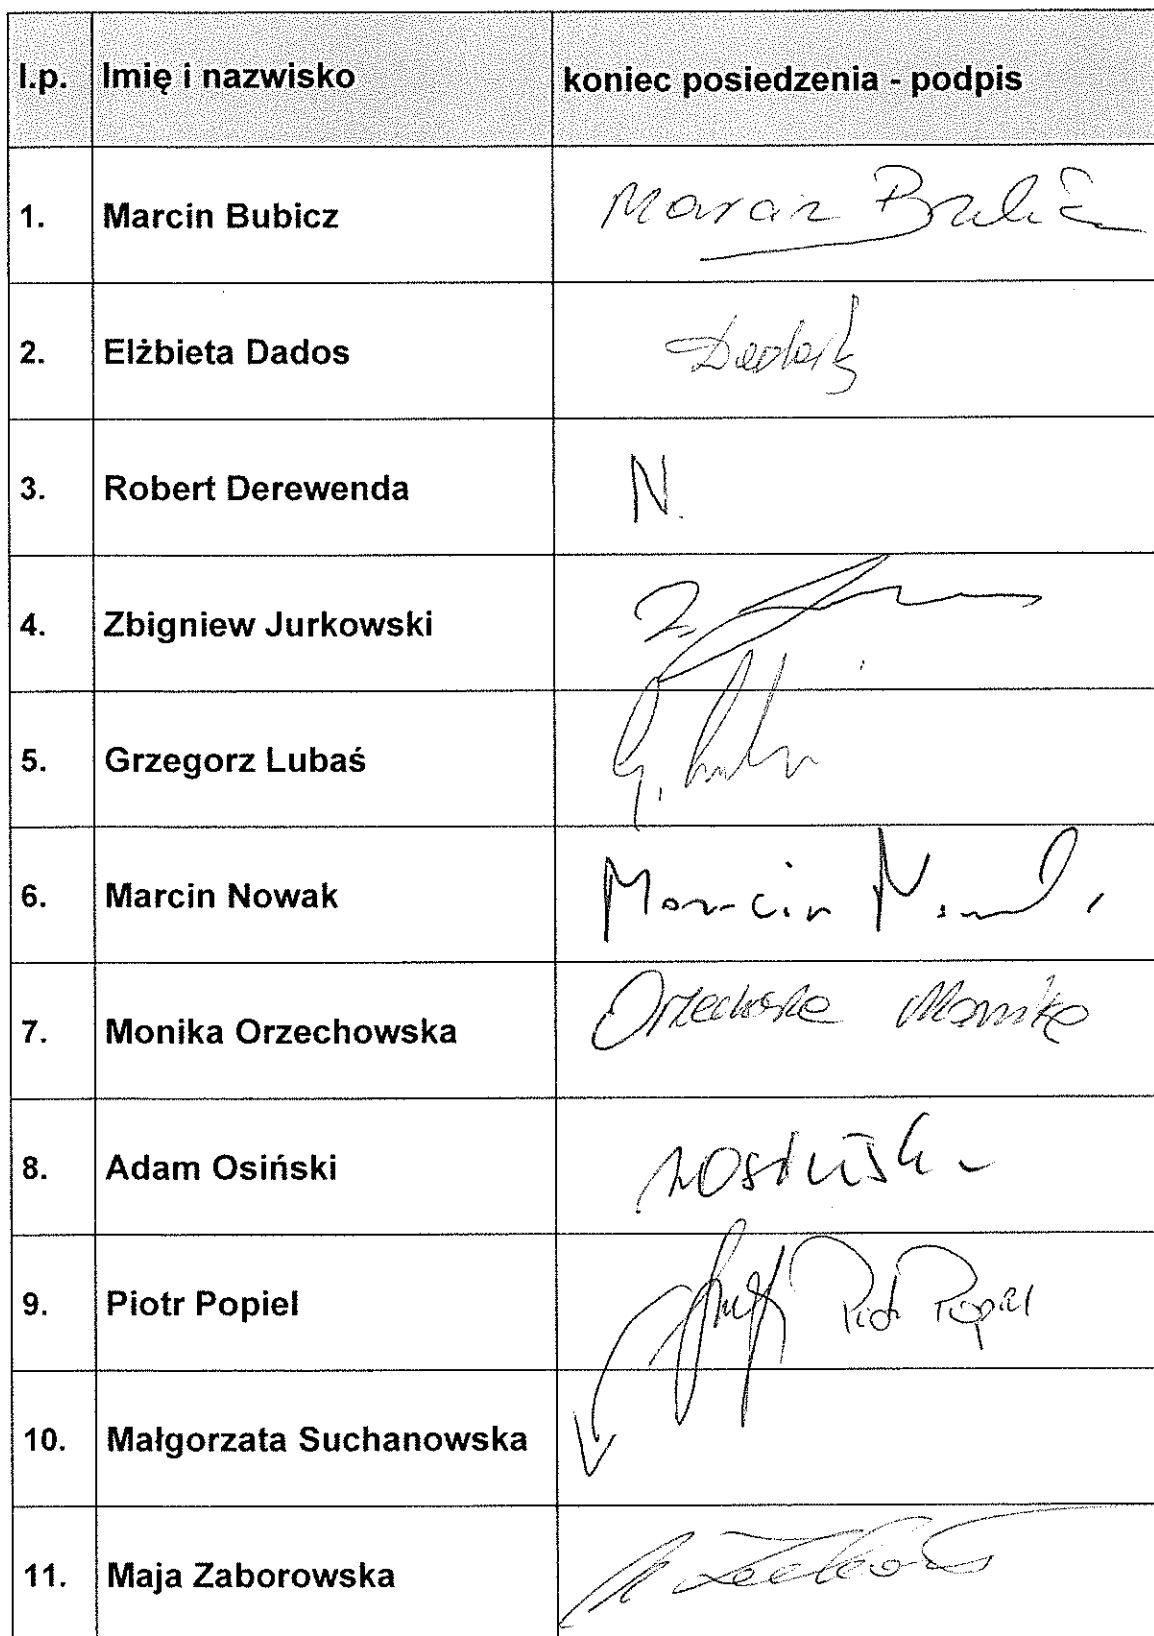 l.p. Imię i nazwisko koniec posiedzenia - podpis
1. Marcin Bubicz Marcin
2. Elżbieta Dados
3. Robert Derewenda N.
4. Zbigniew Jurkowski Z.
5. Grzegorz Lubaś G.
6. Marcin Nowak Marcin
7. Monika Orzechowska Monika
8. Adam Osiński
9. Piotr Popiel Piotr Popiel
10. Małgorzata Suchanowska
11. Maja Zaborowska